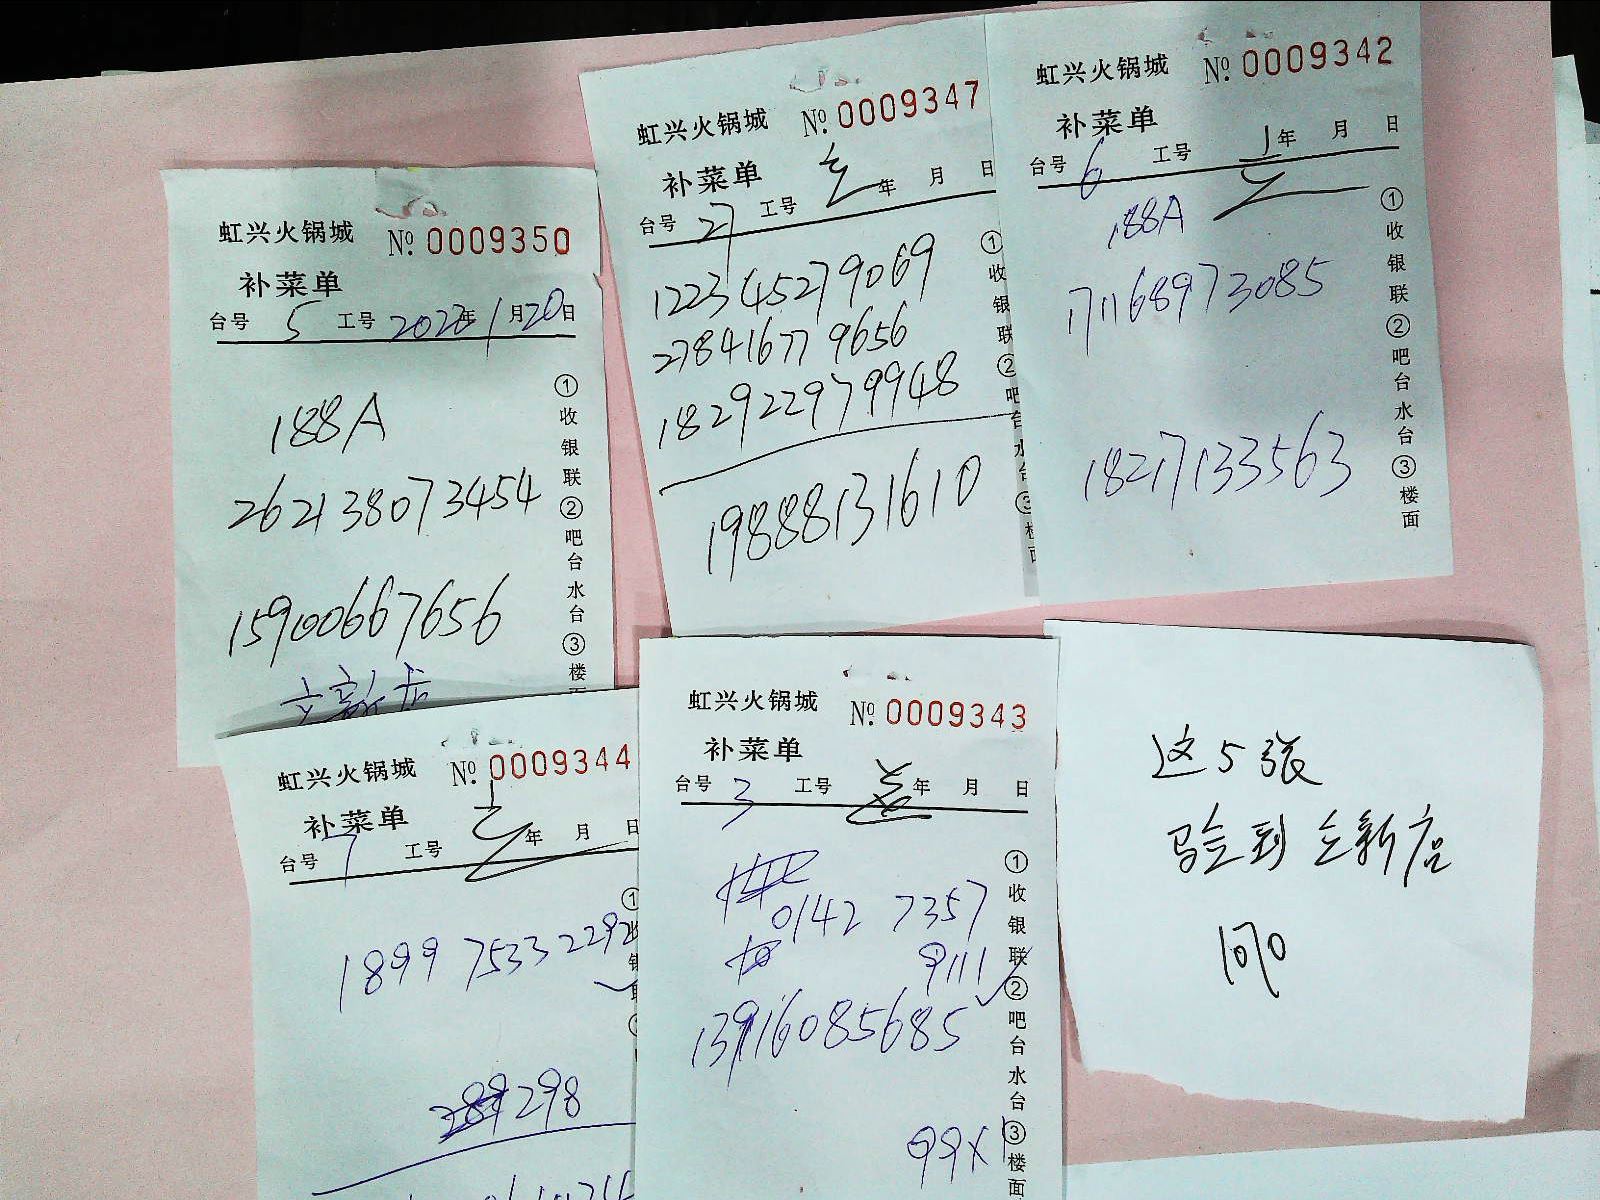 虹兴火锅城 № 0009350
补菜单
台号 5 工号 2022年1月20日
188A
262138073454
15900667656
立新店
①收银联②吧台水台③楼
虹兴火锅城 № 0009347
补菜单
台号 27 工号 年 月 日
122345279069
278416779656
182922979948
19888131610
①收银联②吧台水台③楼面
虹兴火锅城 № 0009342
补菜单
台号 6 工号 年 月 日
188A
171168973085
18217133563
①收银联②吧台水台③楼面
虹兴火锅城 № 0009344
补菜单
台号 7 工号 年 月 日
1899 7533 2292
298
虹兴火锅城 № 0009343
补菜单
台号 3 工号 年 月 日
0142 7357
9111
13916085685
99X1
①收银联②吧台水台③楼面
这5张
验到立新店
1070